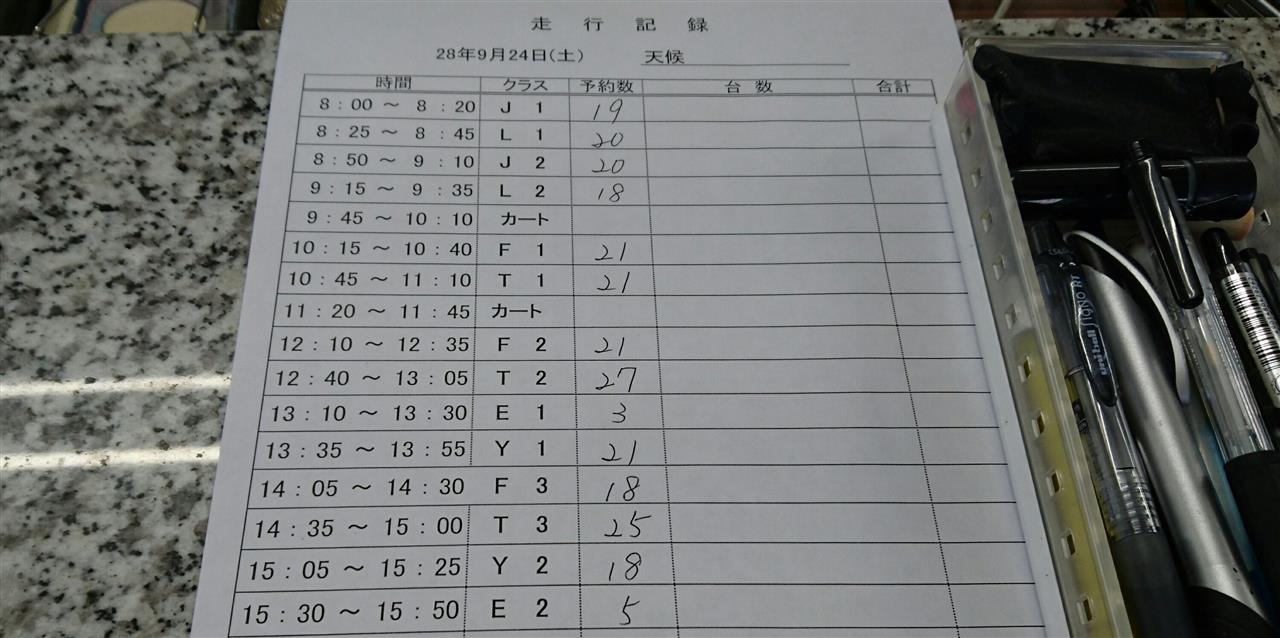 走 行 記 録
28年9月24日(土) 天候
時間 クラス 予約数 台 数 合計
8：00 ～ 8：20 J 1 19
8：25 ～ 8：45 L 1 20
8：50 ～ 9：10 J 2 20
9：15 ～ 9：35 L 2 18
9：45 ～ 10：10 カート
10：15 ～ 10：40 F 1 21
10：45 ～ 11：10 T 1 21
11：20 ～ 11：45 カート
12：10 ～ 12：35 F 2 21
12：40 ～ 13：05 T 2 27
13：10 ～ 13：30 E 1 3
13：35 ～ 13：55 Y 1 21
14：05 ～ 14：30 F 3 18
14：35 ～ 15：00 T 3 25
15：05 ～ 15：25 Y 2 18
15：30 ～ 15：50 E 2 5